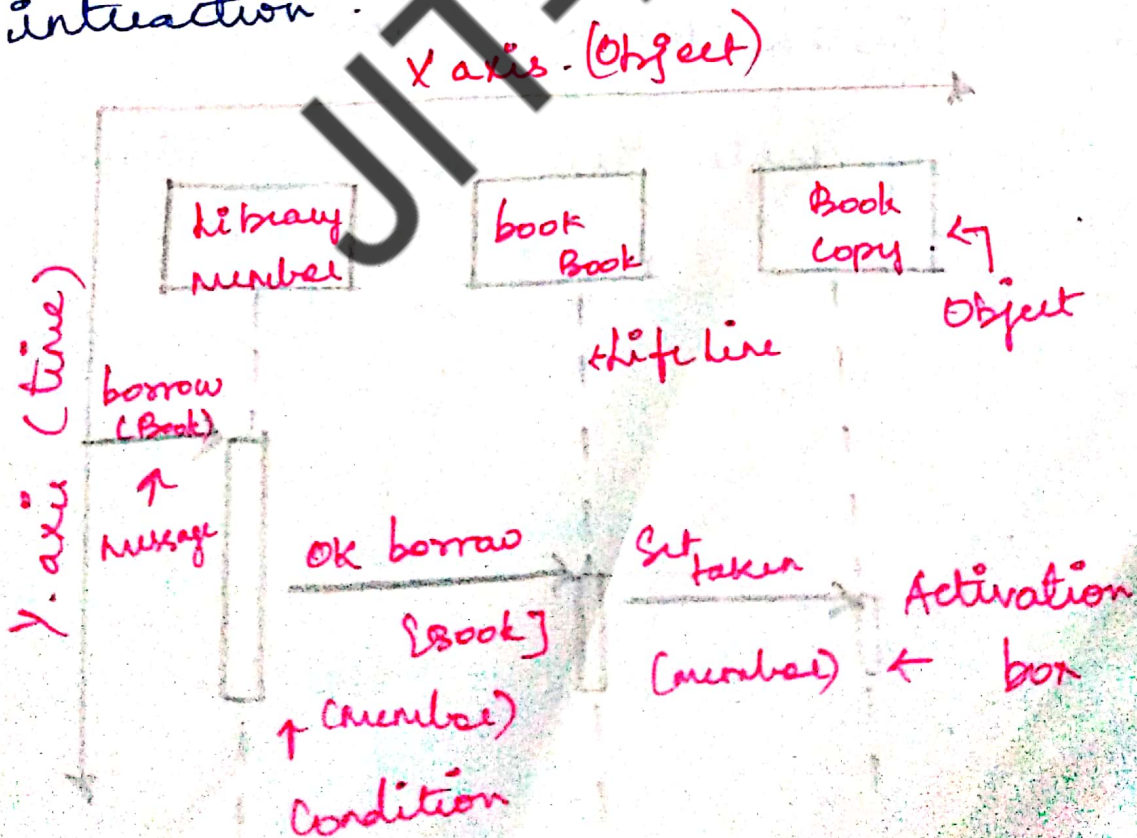 intuaction.
X axis. (Object)
Library
member
book
Book
Book
Copy
Object
Life line
Y. axis (time)
borrow
(Book)
message
OK borrow
[Book]
(member)
Condition
Set
taken
(member)
Activation
box